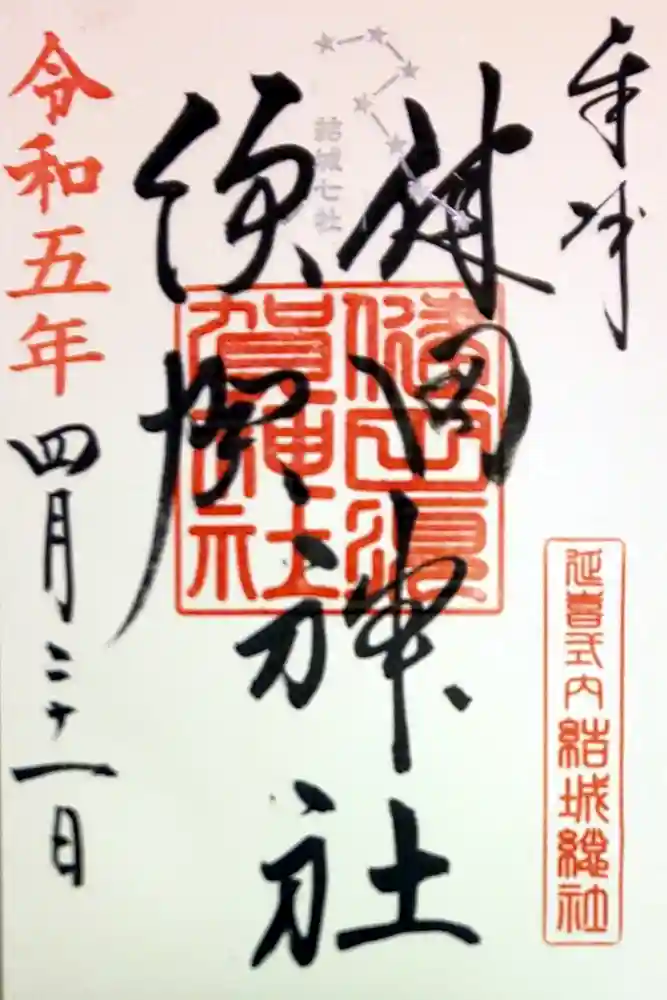 奉拝
延喜式内 結城総社
結城七社
健田
須賀
神社
健田須賀神社
令和五年四月二十一日